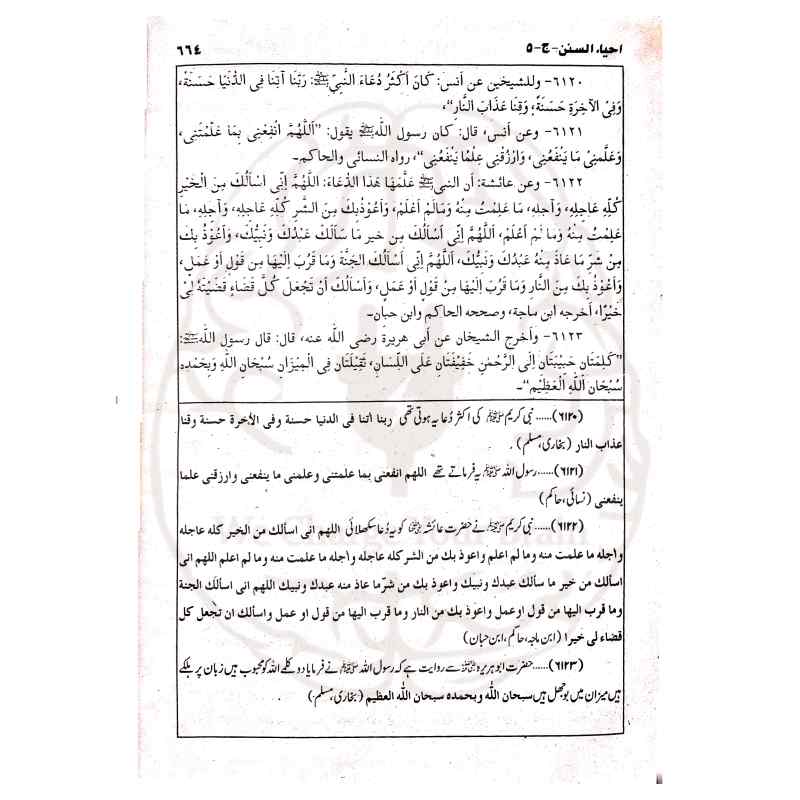 احياء السنن-ج-٥
٦٦٤
٦١٢٠- وللشيخين عن أنس: كَانَ أَكْثَرُ دُعَاءَ النَّبِيِّ ﷺ: رَبَّنَا آتِنَا فِي الدُّنْيَا حَسَنَةً،
وَفِي الآخِرَةِ حَسَنَةً، وَقِنَا عَذَابَ النَّارِ“،
٦١٢١- وعن أنس، قال: كان رسول اللّٰهِ ﷺ يقول: ”اَللّٰهُمَّ انْفَعْنِي بِمَا عَلَّمْتَنِي،
وَعَلِّمْنِيْ مَا يَنْفَعُنِي، وَارْزُقْنِي عِلْمًا يَنْفَعُنِي“، رواه النسائى والحاكم۔
٦١٢٢- وعن عائشة: أن النبي ﷺ عَلَّمَهَا هَذَا الدُّعَاءَ: اللّٰهُمَّ إِنِّي اَسْأَلُكَ مِنَ الْخَيْرِ
كُلِّهِ عَاجِلِهِ، وَآجِلِهِ، مَا عَلِمْتُ مِنْهُ وَمَالَمْ اَعْلَمْ، وَاَعُوْذُبِكَ مِنَ الشَّرِ كُلِّهِ عَاجِلِهِ، وَآجِلِهِ، مَا
عَلِمْتُ مِنْهُ وَمَا لَمْ أَعْلَمْ، اَللّٰهُمَّ إِنِّي أَسْأَلُكَ مِن خير مَا سَأَلَكَ عَبْدُكَ وَنَبِيُّكَ، وَأَعُوْذُ بِكَ
مِنْ شَرِّ مَا عَاذَ مِنْهُ عَبْدُكَ وَنَبِيُّكَ، اَللّٰهُمَّ إِنِّي أَسْأَلُكَ الجَنَّةَ وَمَا قَرُبَ إِلَيْهَا مِن قَوْلٍ أَوْ عَمَلٍ،
وَأَعُوْذُ بِكَ مِنَ النَّارِ وَمَا قَرُبَ إِلَيْهَا مِنْ قَوْلٍ أَوْ عَمَلٍ، وَأَسْأَلُكَ أَنْ تَجْعَلَ كُلَّ قَضَاءٍ قَضَيْتَهُ لِيْ
خَيْرًا، أخرجه ابن ماجة، وصححه الحاكم وابن حبان۔
٦١٢٣- وأخرج الشيخان عن أبي هريرة رضى الله عنه، قال: قال رسول اللهِ ﷺ:
”كَلِمَتَانِ حَبِيْبَتَانِ إِلَى الرَّحْمٰنِ خَفِيْفَتَانِ عَلَى اللِّسَانِ، ثَقِيْلَتَانِ فِي الْمِيْزَانِ سُبْحَانِ اللهِ وَبِحَمْدِهِ
سُبْحَان اللهِ الْعَظِيْمِ“۔
(۶۱۲۰)...... نبی کریم ﷺ کی اکثر دُعا یہ ہوتی تھی ربنا اتنا فى الدنيا حسنة وفى الأخرة حسنة وقنا
عذاب النار (بخاری، مسلم)۔
(۶۱۲۱)...... رسول اللہ ﷺ یہ فرماتے تھے اللهم انفعنى بما علمتنى وعلمنى ما ينفعنى وارزقنى علما
ينفعنى (نسائی، حاکم)
(۶۱۲۲)...... نبی کریم ﷺ نے حضرت عائشہؓ کو یہ دُعا سکھلائی اللهم انى اسألك من الخير كله عاجله
وأجله ما علمت منه وما لم اعلم واعوذ بك من الشر كله عاجله وأجله ما علمت منه وما لم اعلم اللهم انى
اسألك من خير ما سألك عبدك ونبيك واعوذ بك من شرّ ما عاذ منه عبدك ونبيك اللهم انى اسألك الجنة
وما قرب اليها من قول اوعمل واعوذ بك من النار وما قرب اليها من قول او عمل واسألك ان تجعل كل
قضاء لى خيرا (ابن ماجہ، حاکم، ابن حبان)
(۶۱۲۳)...... حضرت ابوہریرہؓ سے روایت ہے کہ رسول اللہ ﷺ نے فرمایا دو کلمے اللہ کو محبوب ہیں زبان پر ہلکے
ہیں میزان میں بوجھل ہیں سبحان الله وبحمده سبحان الله العظيم (بخاری، مسلم)۔